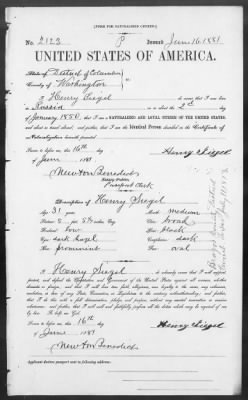 [FORM FOR NATURALIZED CITIZEN.]
No. 2123 P Issued June 16 1881
UNITED STATES OF AMERICA.
State of District of Columbia
County of Washington
I Henry Siegel do swear that I was born in
Russia on the 2d day of
January 1850; that I am a NATURALIZED AND LOYAL CITIZEN OF THE UNITED STATES,
and about to travel abroad; and further, that I am the Identical Person described in the Certificate of
Naturalization
Sworn to before me, this 16th
day of June 1881
Henry Siegel
Newton Benedict
Notary Public.
Passport Clerk
Description of Henry Siegel
Age: 31 years
Mouth: medium
Stature: 5 feet
Chin: broad
Forehead: low
Hair: black
Eyes: dark hazel
Complexion: dark
Nose: prominent
Face: oval
I, Henry Siegel do solemnly swear that I will support,
protect, and defend the Constitution and Government of the United States against all enemies, whether
domestic or foreign; and that I will bear true faith, allegiance, and loyalty to the same, any ordinance,
resolution, or law of any State, Convention, or Legislature to the contrary notwithstanding; and further,
that I do this with a full determination, pledge, and purpose, without any mental reservation or evasion
whatsoever; and further, that I will well and faithfully perform all the duties which may be required of me
by law. So help me God.
Sworn to before me, this 16th
day of June 1881
Henry Siegel
Newton Benedict
Applicant desires passport sent to following address: